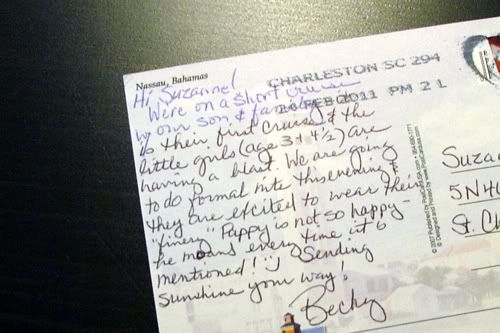 Nassau, Bahamas
CHARLESTON SC 294
26 FEB 2011 PM 2 L
Hi Suzanne!
We're on a short cruise
w our son & family. It
is their first cruise & the
little girls (age 3 + 4½) are
having a blast. We are going
to do formal nite this evening &
they are excited to wear their
"finery". Pappy is not so happy -
he moans every time it's
mentioned! Sending
sunshine your way!
Becky
Suza
5N4
St. Ch